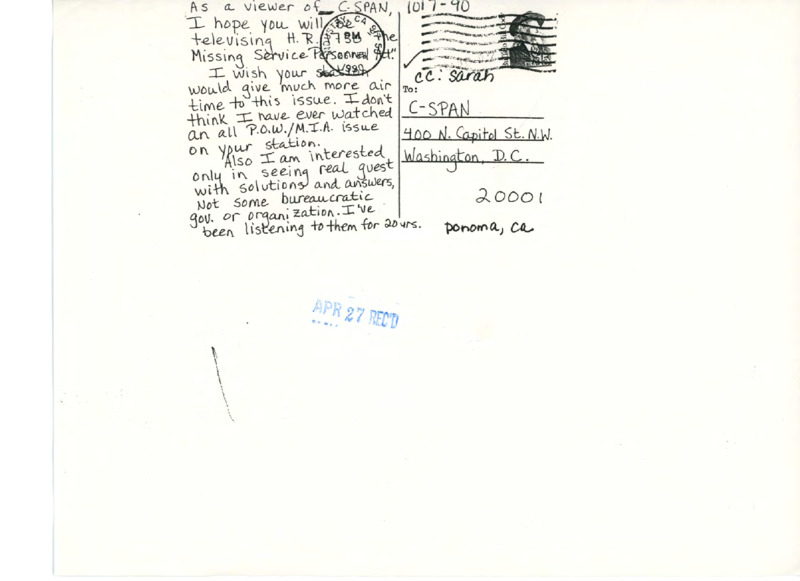 As a viewer of C-SPAN,
I hope you will be
televising H.R. "The
Missing Service Personnel Act."
I wish your station
would give much more air
time to this issue. I don't
think I have ever watched
an all P.O.W./M.I.A. issue
on your station.
Also I am interested
only in seeing real guest
with solutions and answers,
Not some bureaucratic
gov. or organization. I've
been listening to them for 20yrs.
1017-90
cc: sarah
To:
C-SPAN
400 N. Capitol St. N.W.
Washington, D.C.
20001
ponoma, ca
APR 27 REC'D